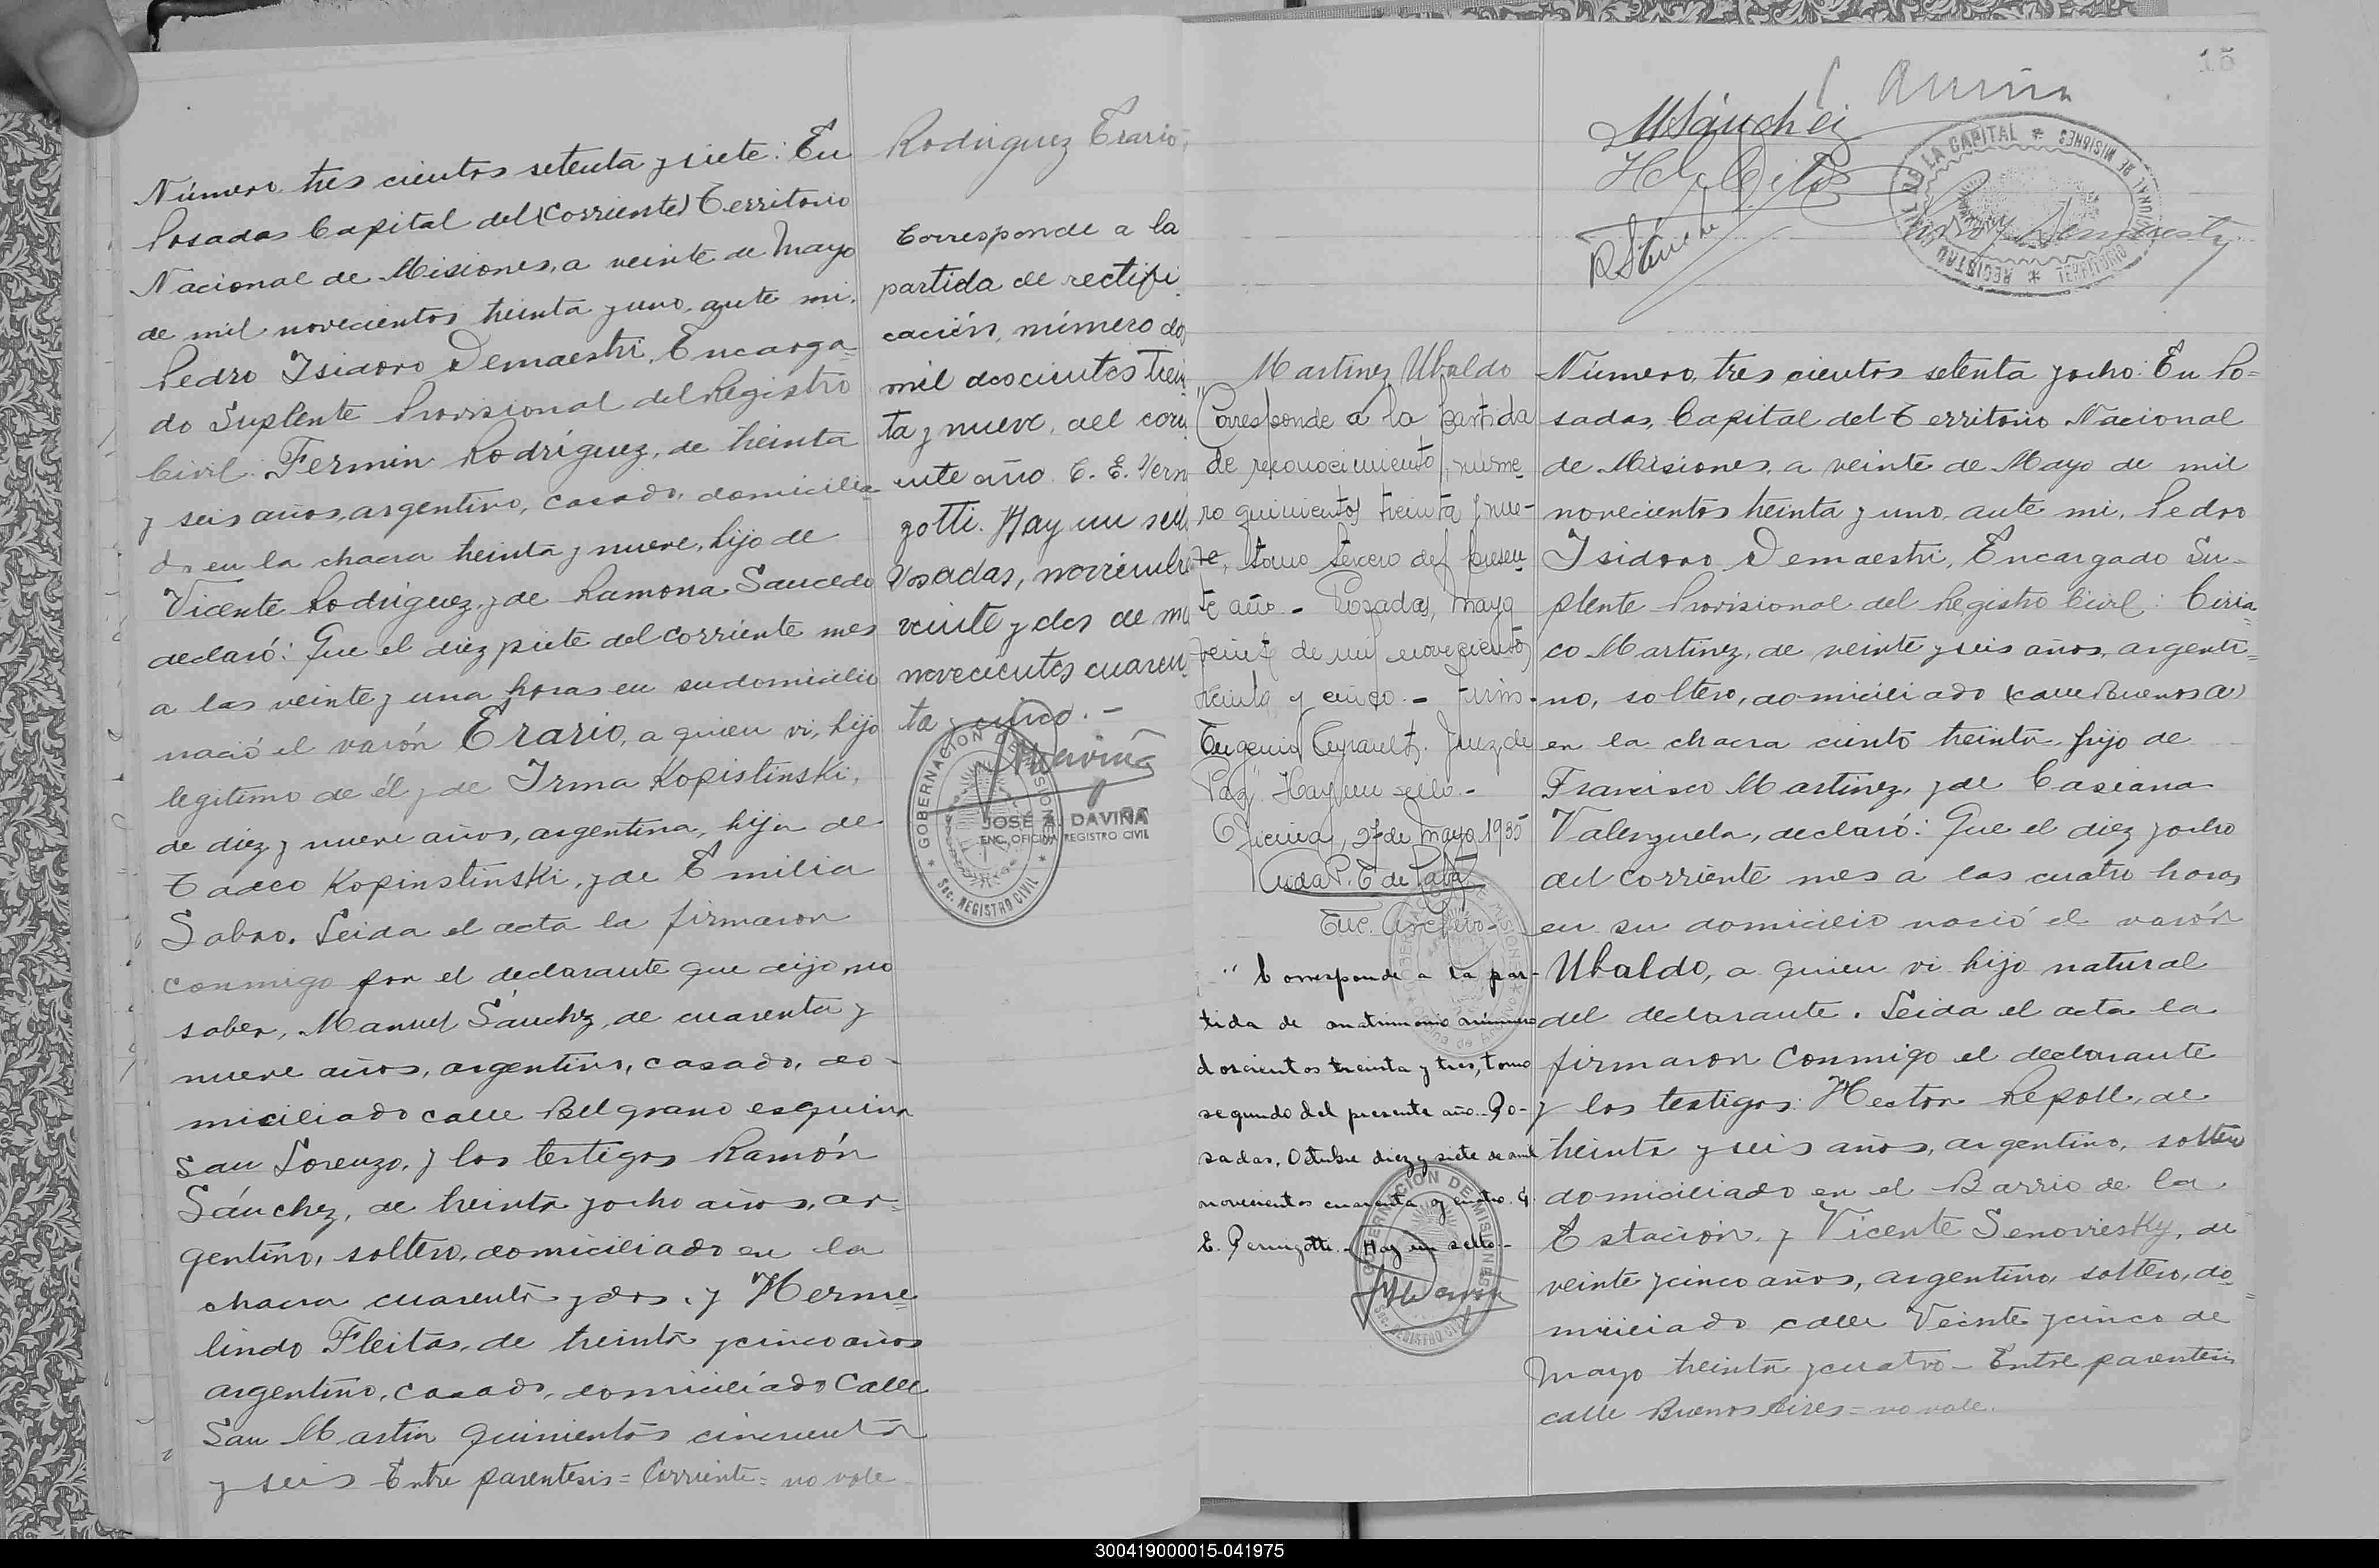 Número tres cientos setenta y siete: En
Posadas Capital del (Corriente) Territorio
Nacional de Misiones, a veinte de Mayo
de mil novecientos treinta y uno, ante mi,
Pedro Isidoro Demaestri, Encarga-
do Suplente Provisional del Registro
Civil: Fermin Rodríguez, de treinta
y seis años, argentino, casado, domicilia
do en la chacra treinta y nueve, hijo de
Vicente Rodríguez, y de Ramona Saucedo
declaró: Que el diez y siete del corriente mes
a las veinte y una horas en su domicilio
nació el varón Erario, a quien vi, hijo
legitimo de él y de Irma Kopistinski,
de diez y nueve años, argentina, hija de
Tadeo Kopinstinski, y de Emilia
Sabro. Leida el acta la firmaron
conmigo por el declarante que dijo no
saber, Manuel Sánchez, de cuarenta y
nueve años, argentino, casado, do-
miciliado calle Belgrano esquina
San Lorenzo, y los testigos Ramón
Sánchez, de treinta y ocho años, ar-
gentino, soltero, domiciliado en la
chacra cuarenta y dos, y Herme=
lindo Fleitas, de treinta y cinco años
argentino, casado, domiciliado Calle
San Martin quinientos cincuenta
y seis Entre parentesis = Corriente = no vale
Rodriguez Erario,
Corresponde a la
partida de rectifi
cación, número dos
mil doscientos trein
ta y nueve, del corri
ente año. C. E. Vern
zotti. Hay un sello
Posadas, noviembre
veinte y dos de mil
novecientos cuaren
ta y cinco. -
GOBERNACION DE MISIONES
JOSÉ A. DAVIÑA
ENC. OFICINA REGISTRO CIVIL
Sec. REGISTRO CIVIL
15
MSánchez
R Sánchez
REGISTRO CIVIL DE LA CAPITAL * NACIONAL DE MISIONES
Pedro I Demaestri
Martinez Ubaldo
"Corresponde a la partida
de reconocimiento, núme-
ro quinientos treinta y nue-
ve, tomo tercero del presen-
te año - Posadas, Mayo
veinte de mil novecientos
treinta y cinco. - Firm.
Eugenio Juez de
Paz" Hay un sello -
Oficina, 27 de Mayo 1935
Enc. Archivo -
"Corresponde a la par-
tida de matrimonio número
doscientos treinta y tres, tomo
segundo del presente año. Po-
sadas, Octubre diez y siete de mil
novecientos cuarenta y cuatro. C.
E. Pernigotti. - Hay un sello -
GOBERNACION DE MISIONES
Sec. REGISTRO CIVIL
Número, tres cientos setenta y ocho: En Po=
sadas, Capital del Territorio Nacional
de Misiones, a veinte de Mayo de mil
novecientos treinta y uno, ante mi, Pedro
Isidoro Demaestri, Encargado Su-
plente Provisional del Registro Civil: Ciria=
co Martinez, de veinte y seis años, argenti=
no, soltero, domiciliado (calle Buenos A)
en la chacra ciento treinta, hijo de
Francisco Martinez, y de Casiana
Valenzuela, declaró: Que el diez y ocho
del corriente mes a las cuatro horas
en su domicilio nació el varón
Ubaldo, a quien vi hijo natural
del declarante. Leida el acta la
firmaron conmigo el declarante
y los testigos: Hector Repoll, de
treinta y seis años, argentino, soltero
domiciliado en el Barrio de la
Estación, y Vicente Senoviesky, de
veinte y cinco años, argentino, soltero, do=
miciliado calle Veinte y cinco de
Mayo treinta y cuatro - Entre parentesis
calle Buenos Aires = no vale.
300419000015-041975